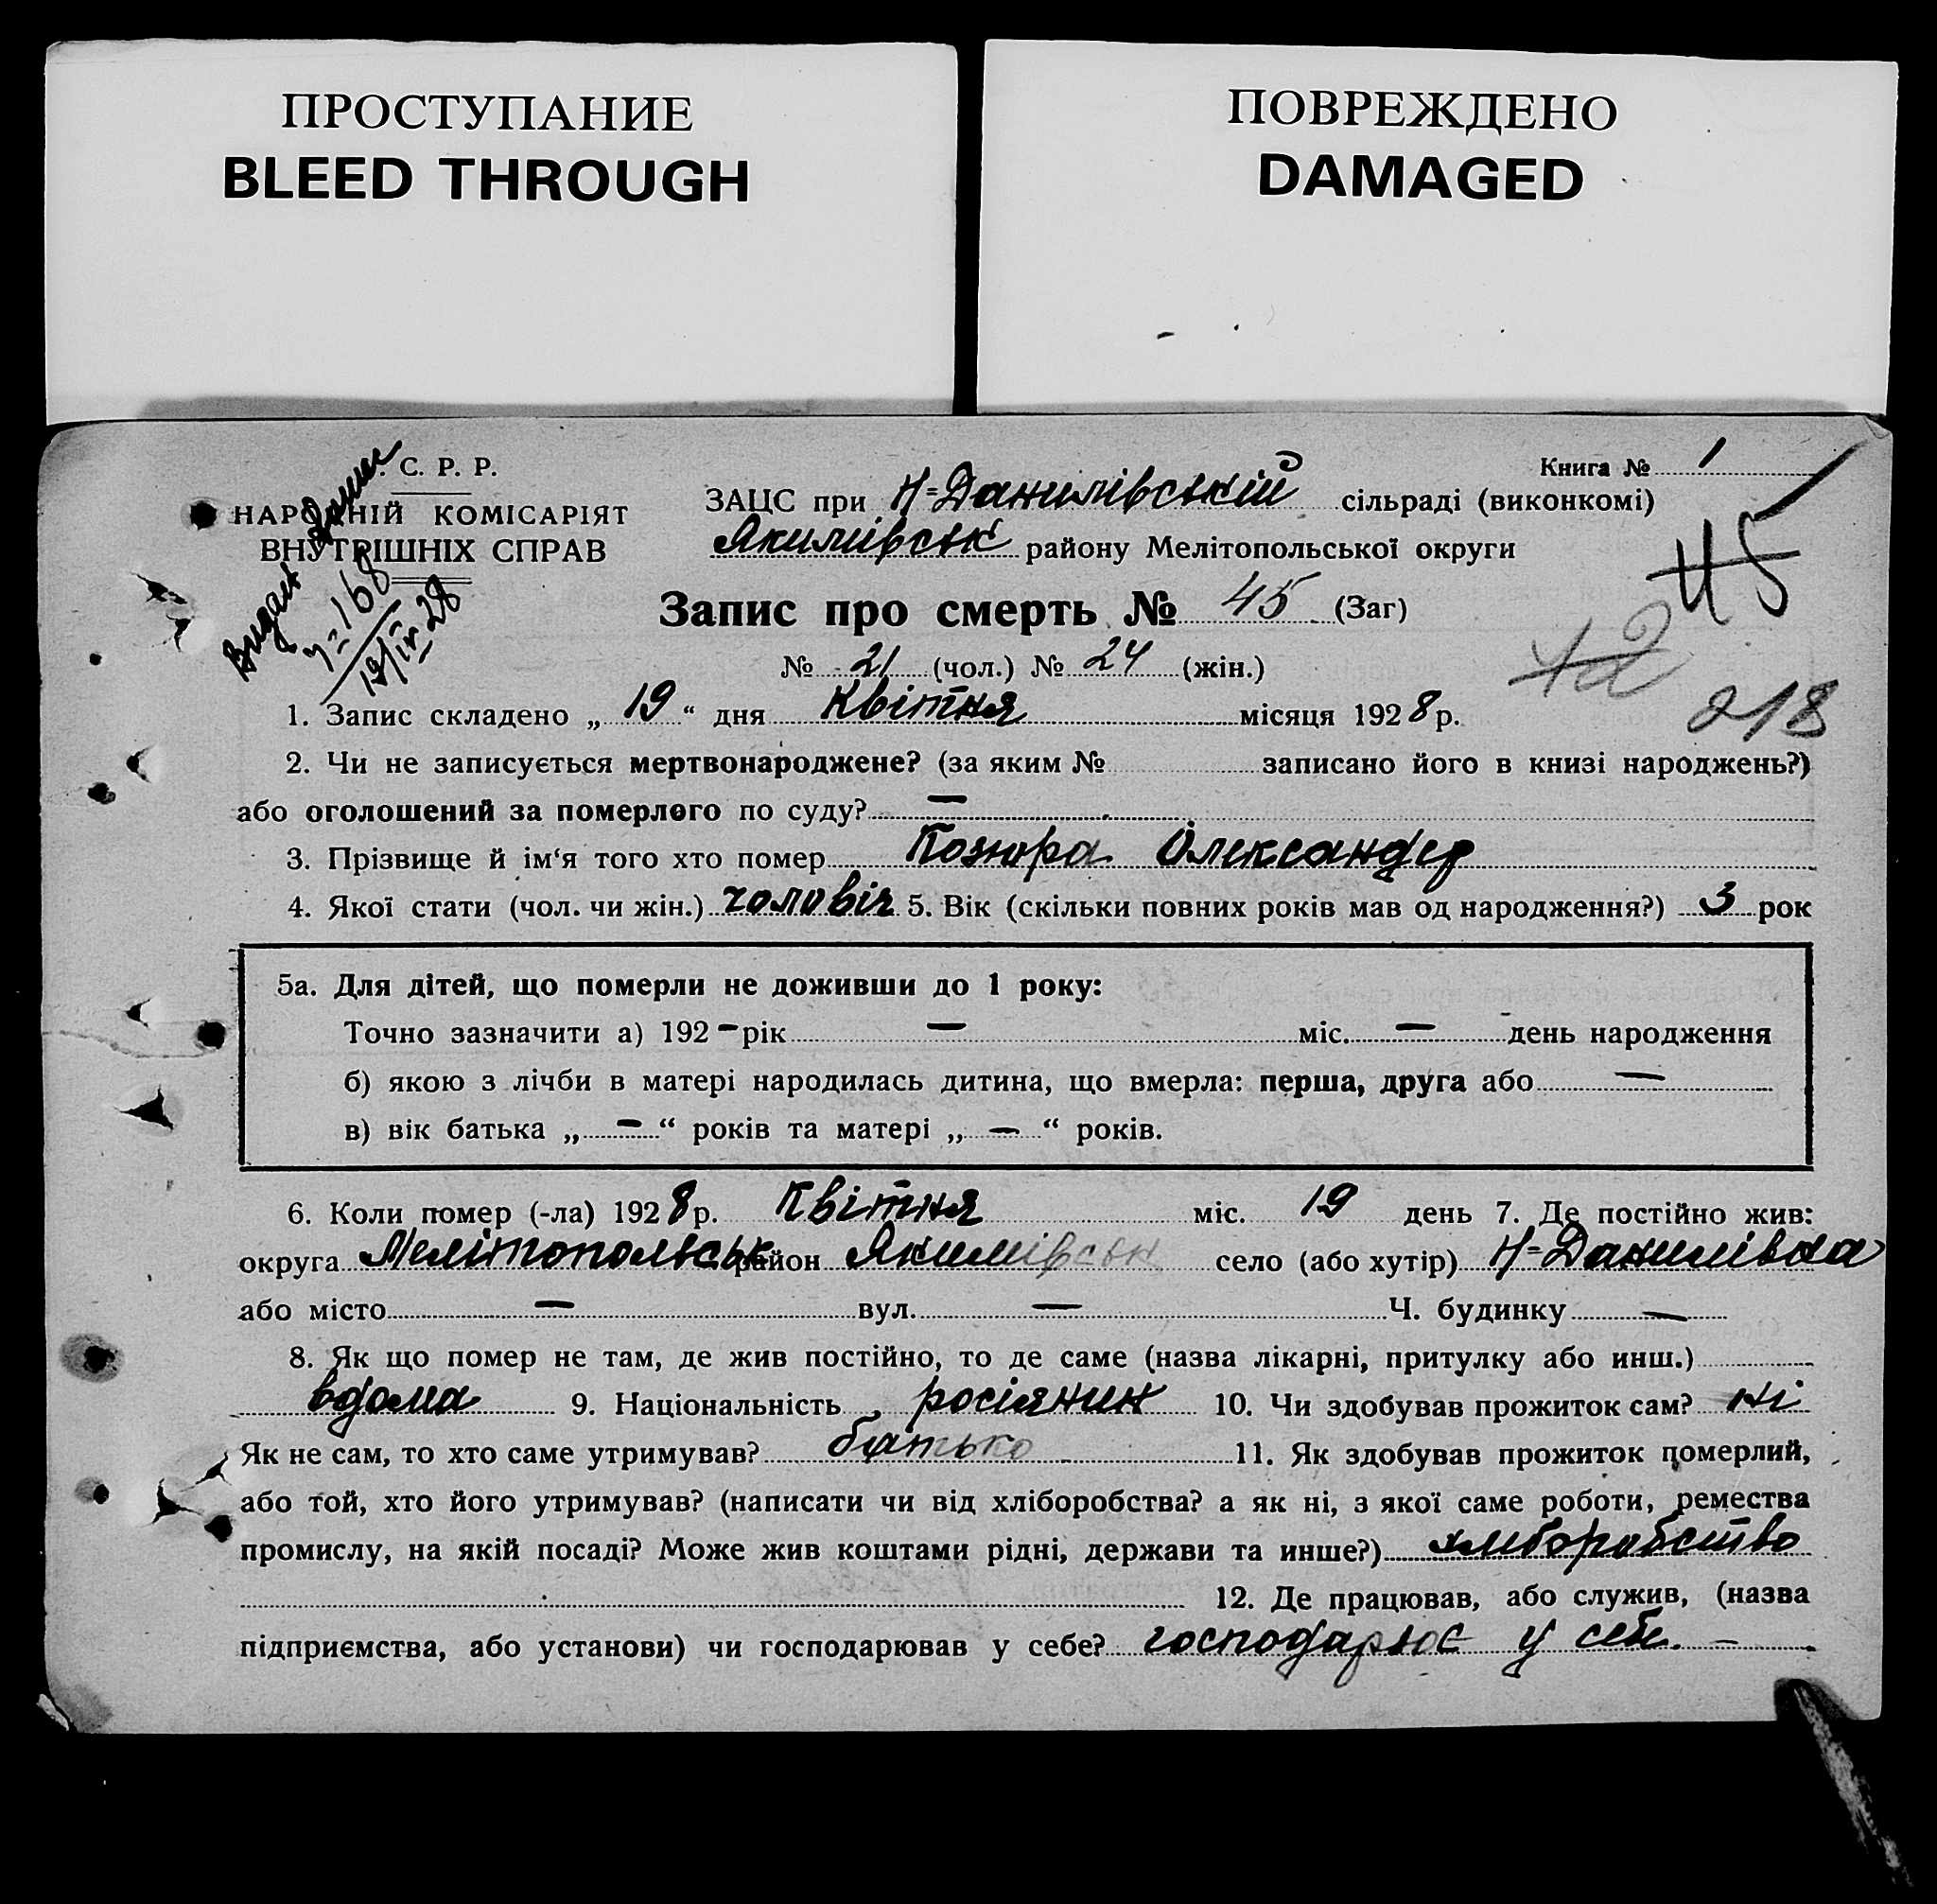 ПРОСТУПАНИЕ
BLEED THROUGH
ПОВРЕЖДЕНО
DAMAGED
С. Р. Р.
НАРОДНІЙ КОМІСАРІЯТ
ВНУТРІШНІХ СПРАВ
Видан
№ 168
19/IV-28
Книга № 1
ЗАЦС при Н-Данилівській сільраді (виконкомі)
Якимівськ району Мелітопольської округи
45
Запис про смерть № 45 (Заг)
№ 21 (чол.) № 24 (жін.)
42
218
1. Запис складено „ 19 “ дня Квітня місяця 1928 р.
2. Чи не записується мертвонароджене? (за яким № записано його в книзі народжень?)
або оголошений за померлого по суду? —
3. Прізвище й ім‘я того хто помер Козюра Олександер
4. Якої стати (чол. чи жін.) чоловіч 5. Вік (скільки повних років мав од народження?) 3 рок
5а. Для дітей, що померли не доживши до 1 року:
Точно зазначити а) 192 – рік — міс. — день народження
б) якою з лічби в матері народилась дитина, що вмерла: перша, друга або —
в) вік батька „ – “ років та матері „ – “ років.
6. Коли помер (-ла) 1928 р. Квітня міс. 19 день 7. Де постійно жив:
округа Мелітопольськ район Якимівськ село (або хутір) Н-Данилівка
або місто — вул. — Ч. будинку —
8. Як що помер не там, де жив постійно, то де саме (назва лікарні, притулку або инш.)
вдома 9. Національність росіянин 10. Чи здобував прожиток сам? ні
Як не сам, то хто саме утримував? батько 11. Як здобував прожиток померлий,
або той, хто його утримував? (написати чи від хліборобства? а як ні, з якої саме роботи, ремества
промислу, на якій посаді? Може жив коштами рідні, держави та инше?) хліборобство
12. Де працював, або служив, (назва
підприємства, або установи) чи господарював у себе? господарює у себе. –